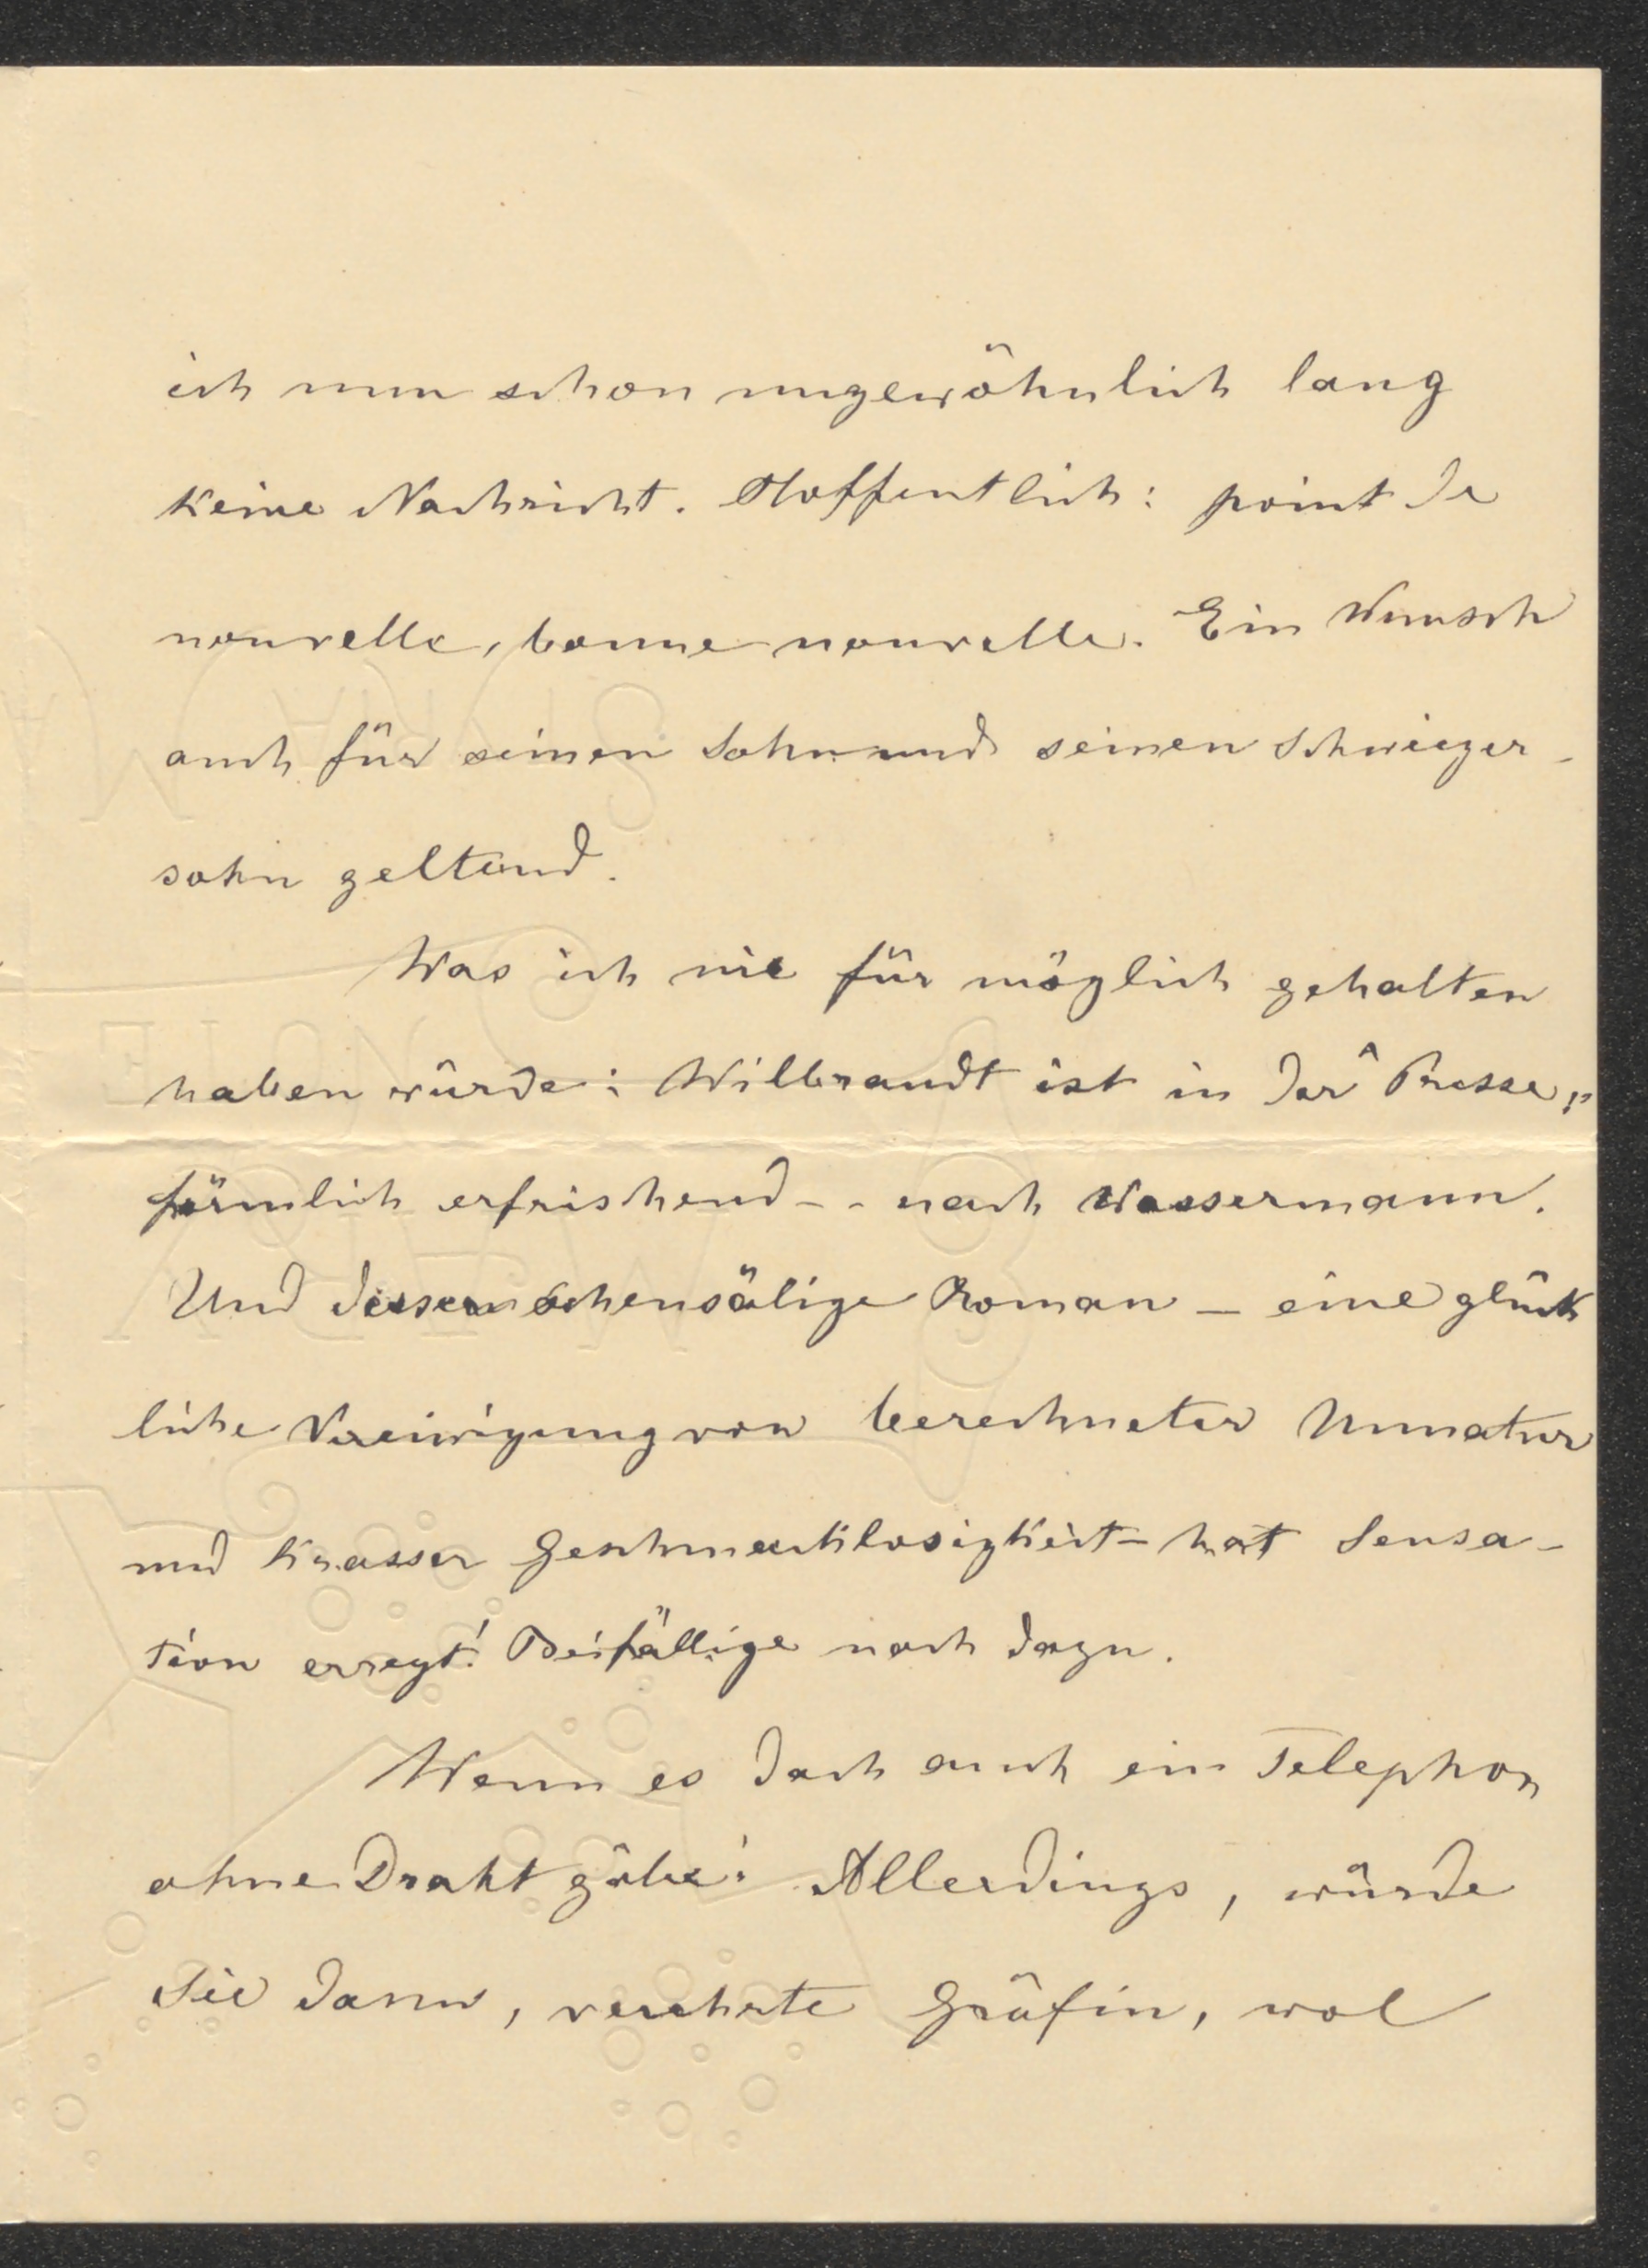 ich nun schon ungewöhnlich lang
keine Nachricht. Hoffentlich: point de
nouvelle, bonne nouvelle. Ein Wunsch
auch für seinen Sohn und seinen Schwieger-
sohn geltend.
Was ich nie für möglich gehalten
haben würde: Wilbrandt ist in der "Presse"
förmlich erfrischend - - nach Wassermann.
Und dessen scheusälige Roman – eine glück
liche Vereinigung von berechneter Unnatur
und krasser Geschmacklosigkeit – hat Sensa-
tion erregt! Beifällige noch dazu.
Wenn es doch auch ein Telephon
ohne Draht gäbe! Allerdings, würde
Sie dann, verehrte Gräfin, wol